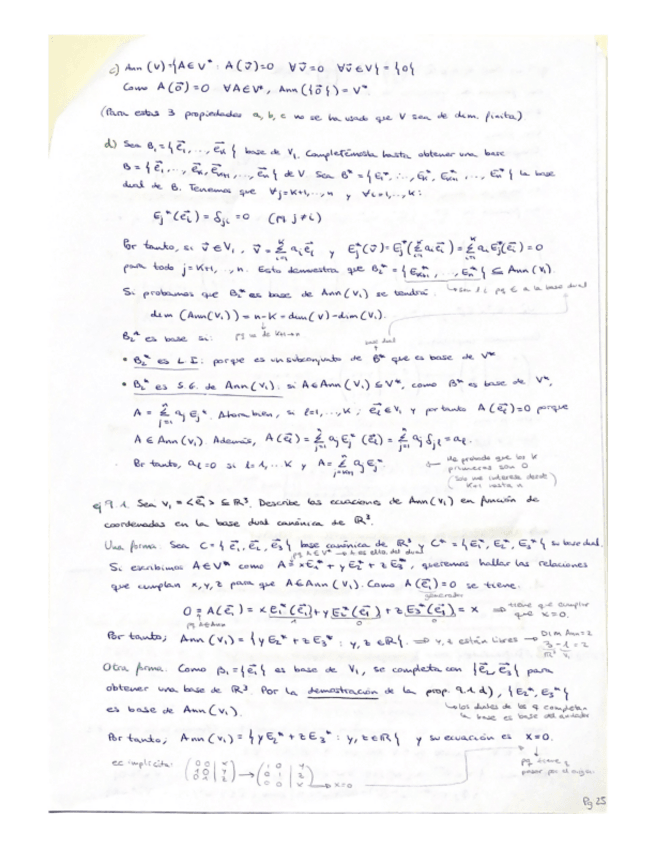 c) Ann (V) = {A ∈ V* : A(v⃗)=0 ∀v⃗=0 ∀v⃗ ∈ V} = {0}
Como A(o⃗)=0 ∀A∈V*, Ann ({o⃗}) = V*
(Para estas 3 propiedades a, b, c no se ha usado que V sea de dim. finita)
d) Sea B₁ = {e⃗₁, ..., e⃗k} base de V₁. Completémosla hasta obtener una base
B = {e⃗₁, ..., e⃗k, e⃗k+1, ..., e⃗n} de V. Sea B* = {E₁*, ..., Ek*, Ek+1*, ..., En*} la base
dual de B. Tenemos que ∀j=k+1, ..., n y ∀i=1, ..., k:
Ej*(e⃗i) = δji = 0 (pq j≠i)
Por tanto, si v⃗ ∈ V₁, v⃗ = Σ ai e⃗i y Ej*(v⃗) = Ej*(Σ ai e⃗i) = Σ ai Ej*(e⃗i) = 0
para todo j = k+1, ..., n. Esto demuestra que B₂* = {Ek+1*, ..., En*} ⊆ Ann (V₁).
Si probamos que B₂* es base de Ann (V₁) se tendrá:
↳ son l.i pq ∈ a la base dual
dim (Ann(V₁)) = n-k = dim(V) - dim(V₁).
B₂* es base si:
pq va de k+1→n
base dual
• B₂* es L.I: porque es un subconjunto de B* que es base de V*
• B₂* es S.G. de Ann(V₁): si A∈Ann(V₁) ⊆ V*, como B* es base de V*,
A = Σ aj Ej*. Ahora bien, si l=1, ..., k, e⃗l ∈ V₁ y por tanto A(e⃗l)=0 porque
A ∈ Ann (V₁). Además, A(e⃗l) = Σ aj Ej* (e⃗l) = Σ aj δjl = al.
Por tanto, al=0 si l=1, ... k y A = Σ aj Ej*
← He probado que los k
primeros son 0
(Sólo me interesa desde
k+1 hasta n)
ej 9.1. Sea V₁ = <e⃗₁> ⊆ R³. Describe las ecuaciones de Ann(V₁) en función de
coordenadas en la base dual canónica de R³.
Una forma: Sea C = {e⃗₁, e⃗₂, e⃗₃} base canónica de R³ y C* = {E₁*, E₂*, E₃*} su base dual.
Si escribimos A∈V* como A = xE₁* + yE₂* + zE₃*, queremos hallar las relaciones
que cumplan x, y, z para que A∈Ann (V₁). Como A(e⃗₁) = 0 se tiene.
generador
0 = A(e⃗₁) = x E₁*(e⃗₁) + y E₂*(e⃗₁) + z E₃*(e⃗₁) = x ⇒ tiene que cumplir
que x=0.
pq A∈Ann 1 0 0
Por tanto; Ann (V₁) = {yE₂* + zE₃* : y, z ∈ R}. ⇒ y, z están libres → Dim Ann = 2
3 - 1 = 2
R³ V₁
Otra forma: Como B₁ = {e⃗₁} es base de V₁, se completa con {e⃗₂, e⃗₃} para
obtener una base de R³. Por la demostración de la prop. 9.1 d), {E₂*, E₃*}
es base de Ann (V₁).
↳ los duales de los q completan
la base es base del anulador
Por tanto, Ann (V₁) = {yE₂* + zE₃* : y, z ∈ R} y su ecuación es x=0.
ec implícita: (0 0 | x
1 0 | y
0 1 | z) → (1 0 | y
0 1 | z
0 0 | x) → x=0
pq tiene q
pasar por el origen
Pg 25